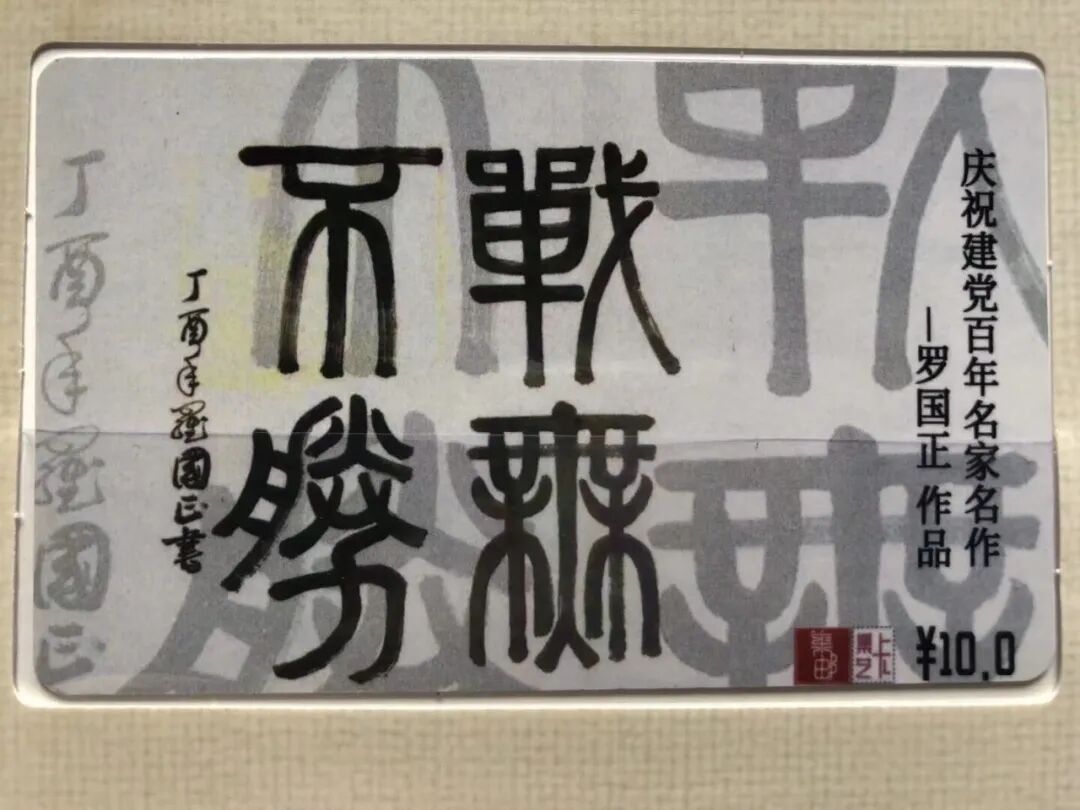 庆祝建党百年名家名作
—罗国正 作品
戰無
不勝
丁酉年羅國正書
丁酉年羅國正
¥10.0